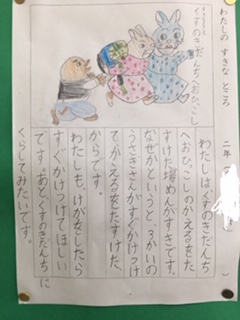 わたしの すきな ところ
二年
くすのきだんちへおひっこし
わたしはくすのきだんち
へおひっこしのかえるをた
すけた場めんがすきです。
なぜかというと、3かいの
うさぎさんがすぐかけつけ
て、かえるをたすけた、
からです。
わたしも、けがをしたら
すぐかけつけてほしい
です。あとくすのきだんちに
くらしてみたいです。